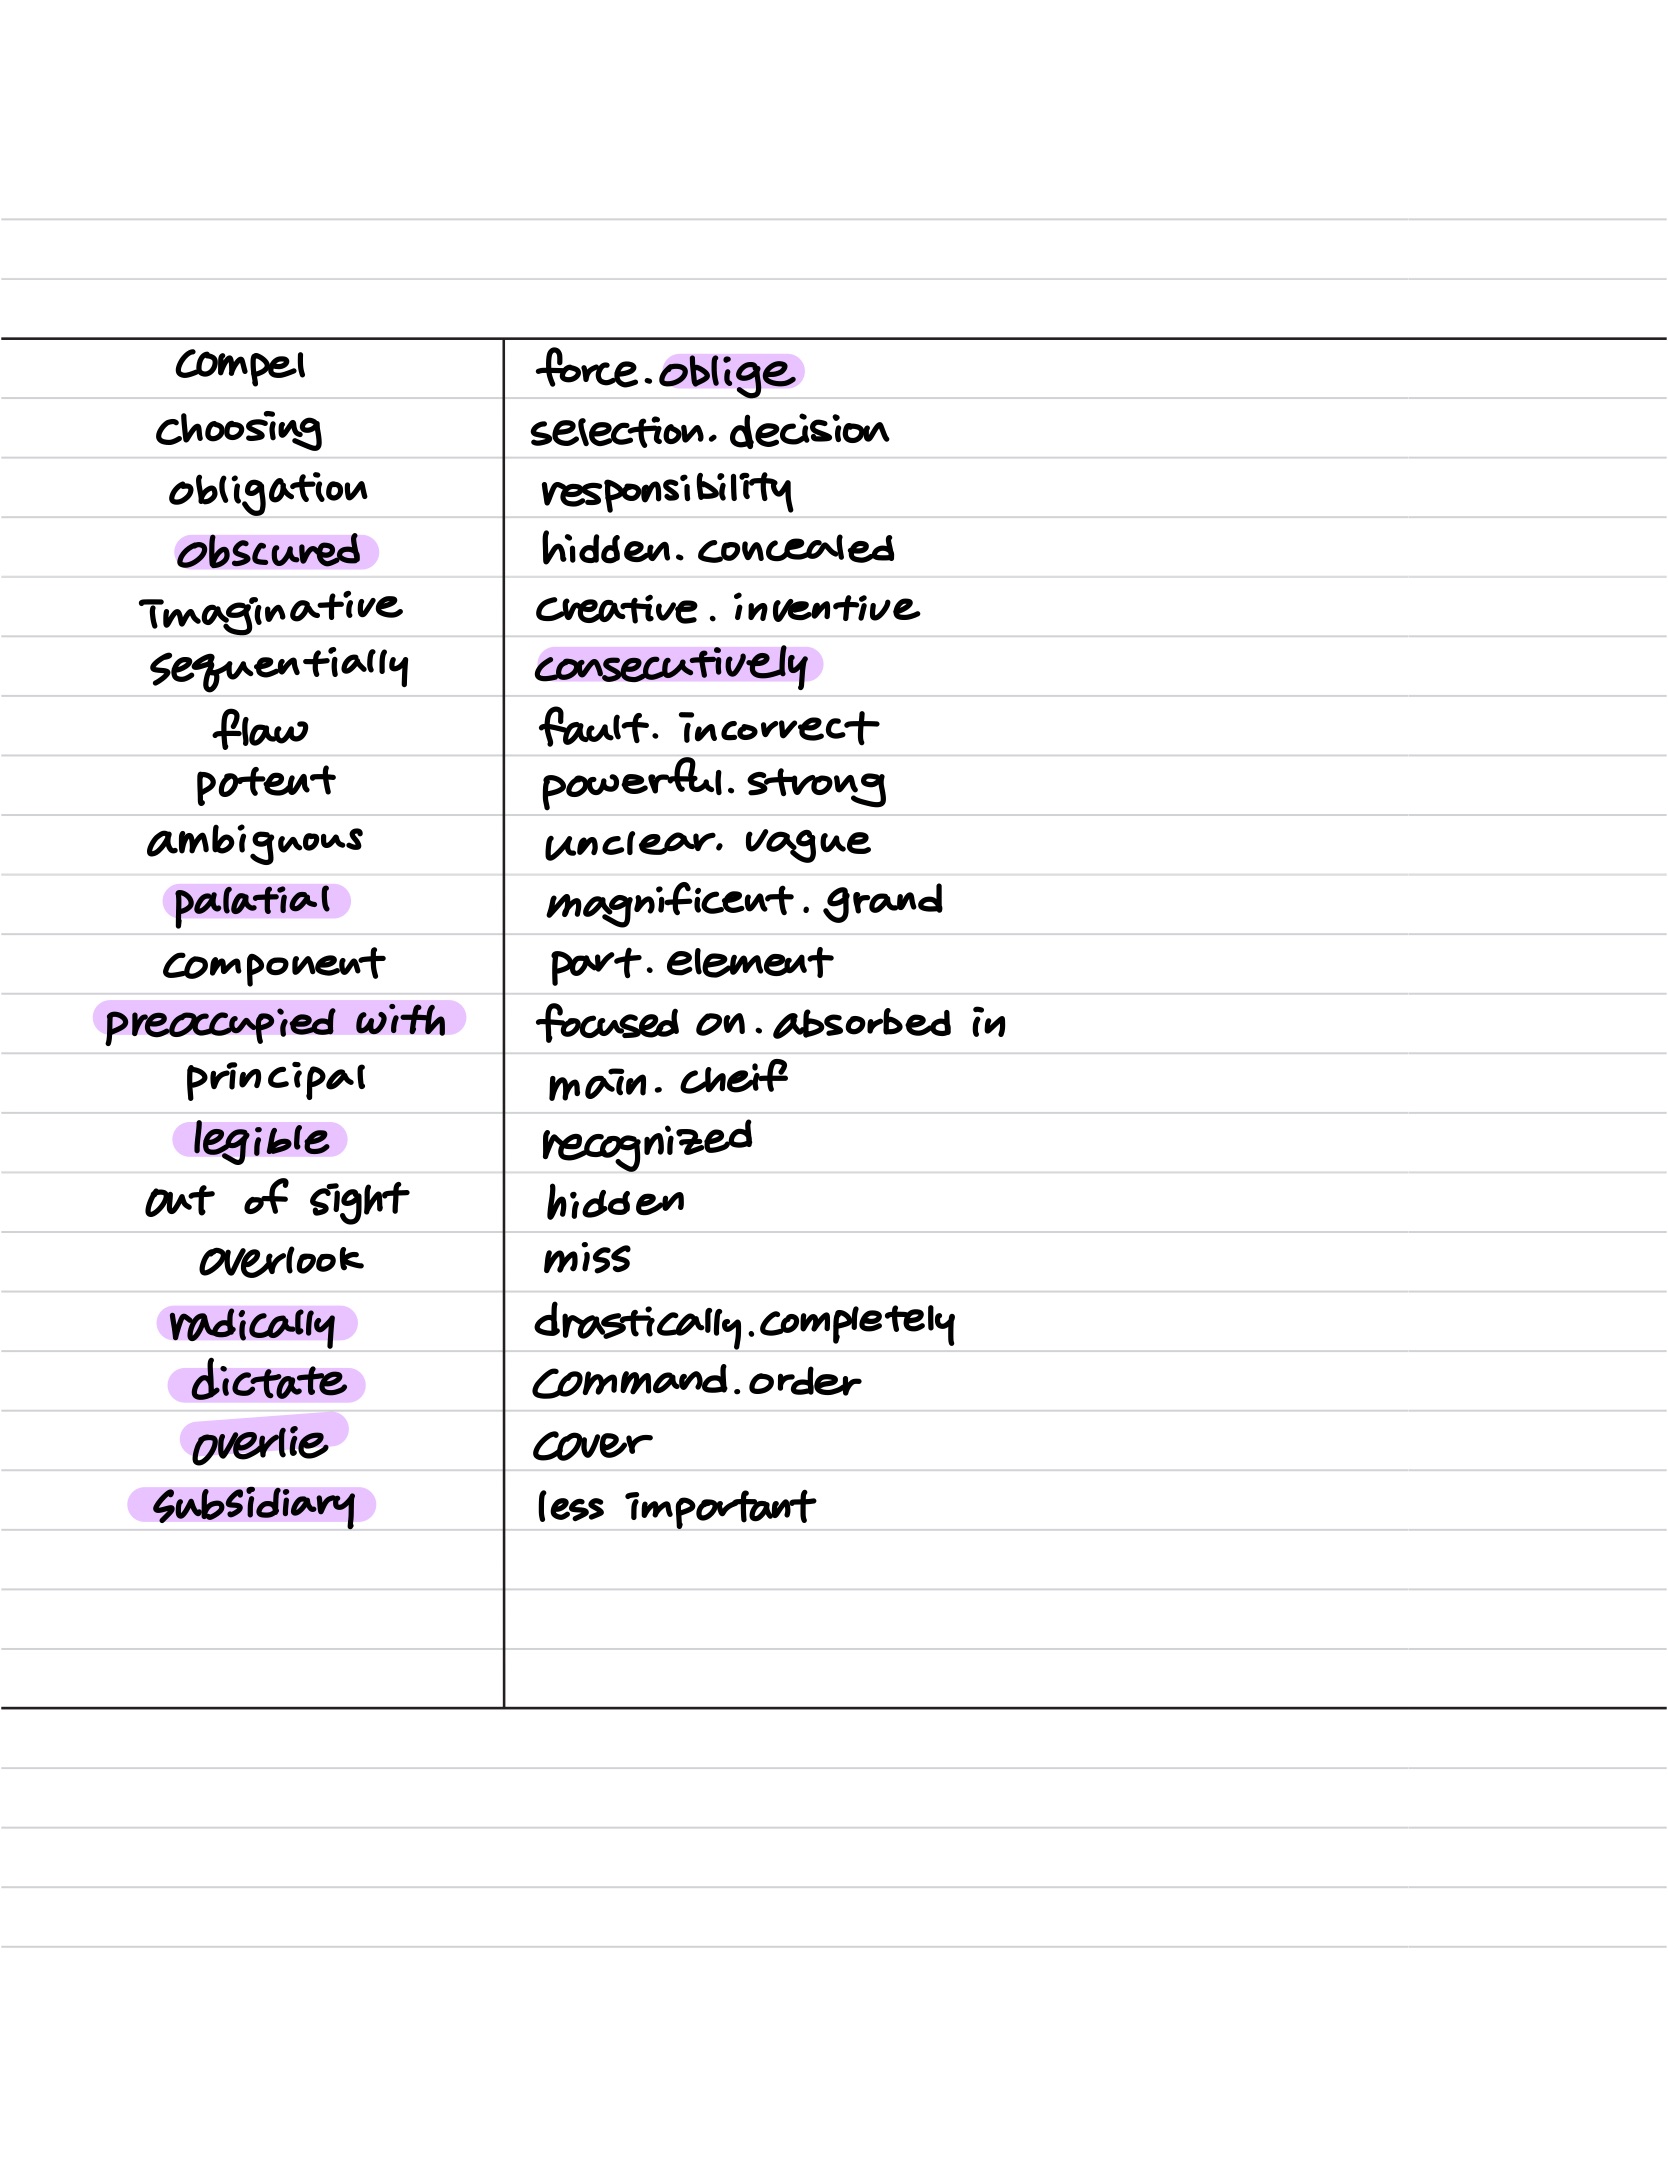 compel force. oblige
choosing selection. decision
obligation responsibility
obscured hidden. concealed
Imaginative creative. inventive
sequentially consecutively
flaw fault. incorrect
potent powerful. strong
ambiguous unclear. vague
palatial magnificent. grand
component part. element
preoccupied with focused on. absorbed in
principal main. cheif
legible recognized
out of sight hidden
overlook miss
radically drastically. completely
dictate command. order
overlie cover
subsidiary less important